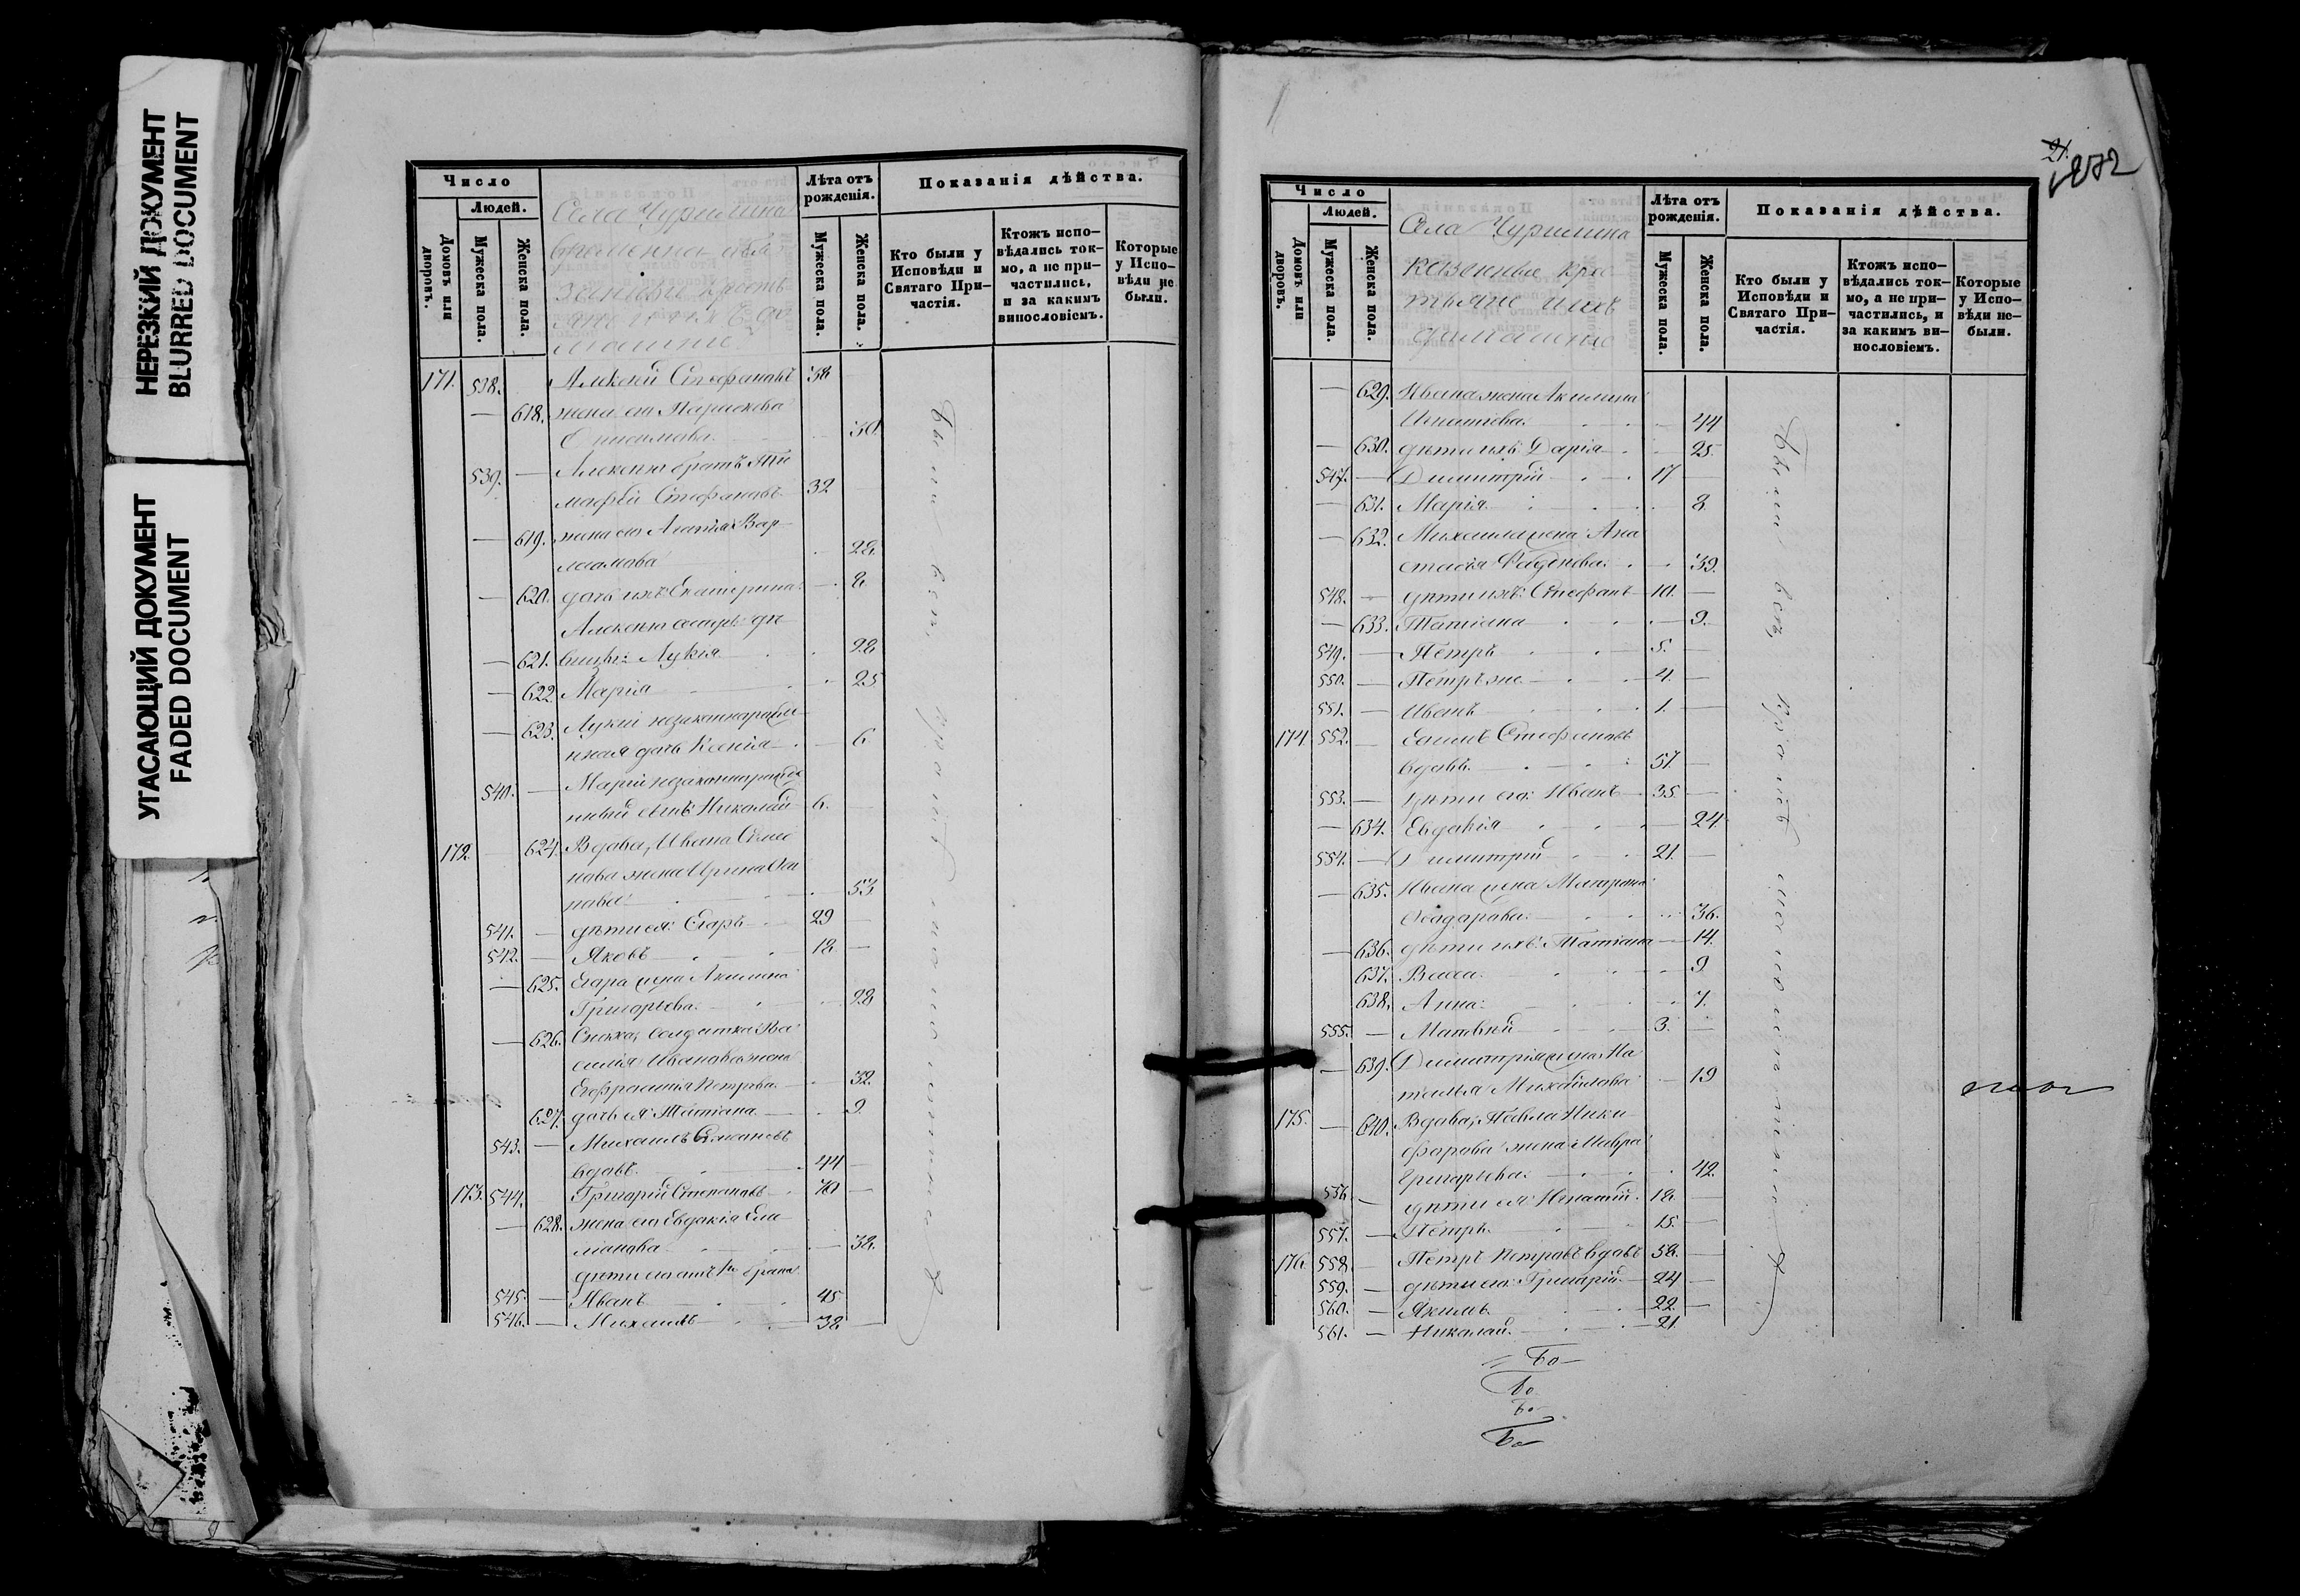 НЕРЕЗКИЙ ДОКУМЕНТ
BLURRED DOCUMENT
УГАСАЮЩИЙ ДОКУМЕНТ
FADED DOCUMENT
Число
Людей.
Домовъ или дворовъ.
Мужеска пола.
Женска пола.
Села Чурилина
Лѣта отъ рожденія.
Мужеска пола.
Женска пола.
Показанія дѣйства.
Кто были у Исповѣди и Святаго Причастія.
Ктожъ исповѣдались токмо, а не причастились, и за какимъ винословіемъ.
Которые у Исповѣди не были.
171. 538. Алексѣй Стефановъ 38
618. жена его Параскева
30.
539. Алексѣя братъ Ти
мофѣй Стефановъ 32
619. жена его Агапія Вар
лаамова 28.
620. дочь ихъ Екатерина 8.
Алексѣя сестры дѣ
621. вицы: Лукія 28
622. Марія 25
623. Лукіи незаконнорожден
ная дочь Ксенія 6.
540. Маріи незаконнорожден
ный сынъ Николай 6.
172. 624. Вдова, Ивана Симео
нова жена Ирина Оси
пова 53
541. дѣти ея: Егоръ 29
542. Яковъ 18.
625. Егора жена Акилина
Григорьева 28
626. Сноха, солдатка Ва
силія Иванова жена
Евфросинія Петрова 32.
627. дочь ея Татіана 9.
543. Михаилъ
вдовъ 44
173. 544. Григорій Степановъ 70
628. жена его Евдокія Ем
38.
дѣти его отъ 1го брака
545. Иванъ 45
546. Михаилъ 38
Были всѣ, кромѣ
21.
272
Число
Людей.
Домовъ или дворовъ.
Мужеска пола.
Женска пола.
Села Чурилина
казенные крес
тьяне и ихъ
домашніе
Лѣта отъ рожденія.
Мужеска пола.
Женска пола.
Показанія дѣйства.
Кто были у Исповѣди и Святаго Причастія.
Ктожъ исповѣдались токмо, а не причастились, и за какимъ винословіемъ.
Которые у Исповѣди небыли.
629. Ивана жена Акилина
Игнатіева 44
630. дѣти ихъ: Дарія 25.
547. Димитрій 17
631. Марія 8.
632. Михаила жена Ана
стасія 39.
548. дѣти ихъ: Стефанъ 10.
633. Татіана 9.
549. Петръ 5.
550. Петръ же 4.
551. Иванъ 1.
174. 552. Стефановъ
вдовъ 57.
553. дѣти его: Иванъ 35.
634. Евдокія 24.
554. Димитрій 21.
635. Ивана жена Матрона
Ѳеодорова 36.
636. дѣти ихъ: Татіана 14.
637. Васса 9
638. Анна 7.
555. Матвѣй 3.
639. Димитрія жена На
талья Михайлова 19
175. 640. Вдова, Павла Ники
форова жена Мавра
Григорьева 42.
556. дѣти ея: Игнатій 18.
557. Петръ 15.
176. 558. Петръ Петровъ вдовъ 58.
559. дѣти его: Григорій 24
560. Якимъ 22.
561. Николай 21.
Были всѣ, кромѣ